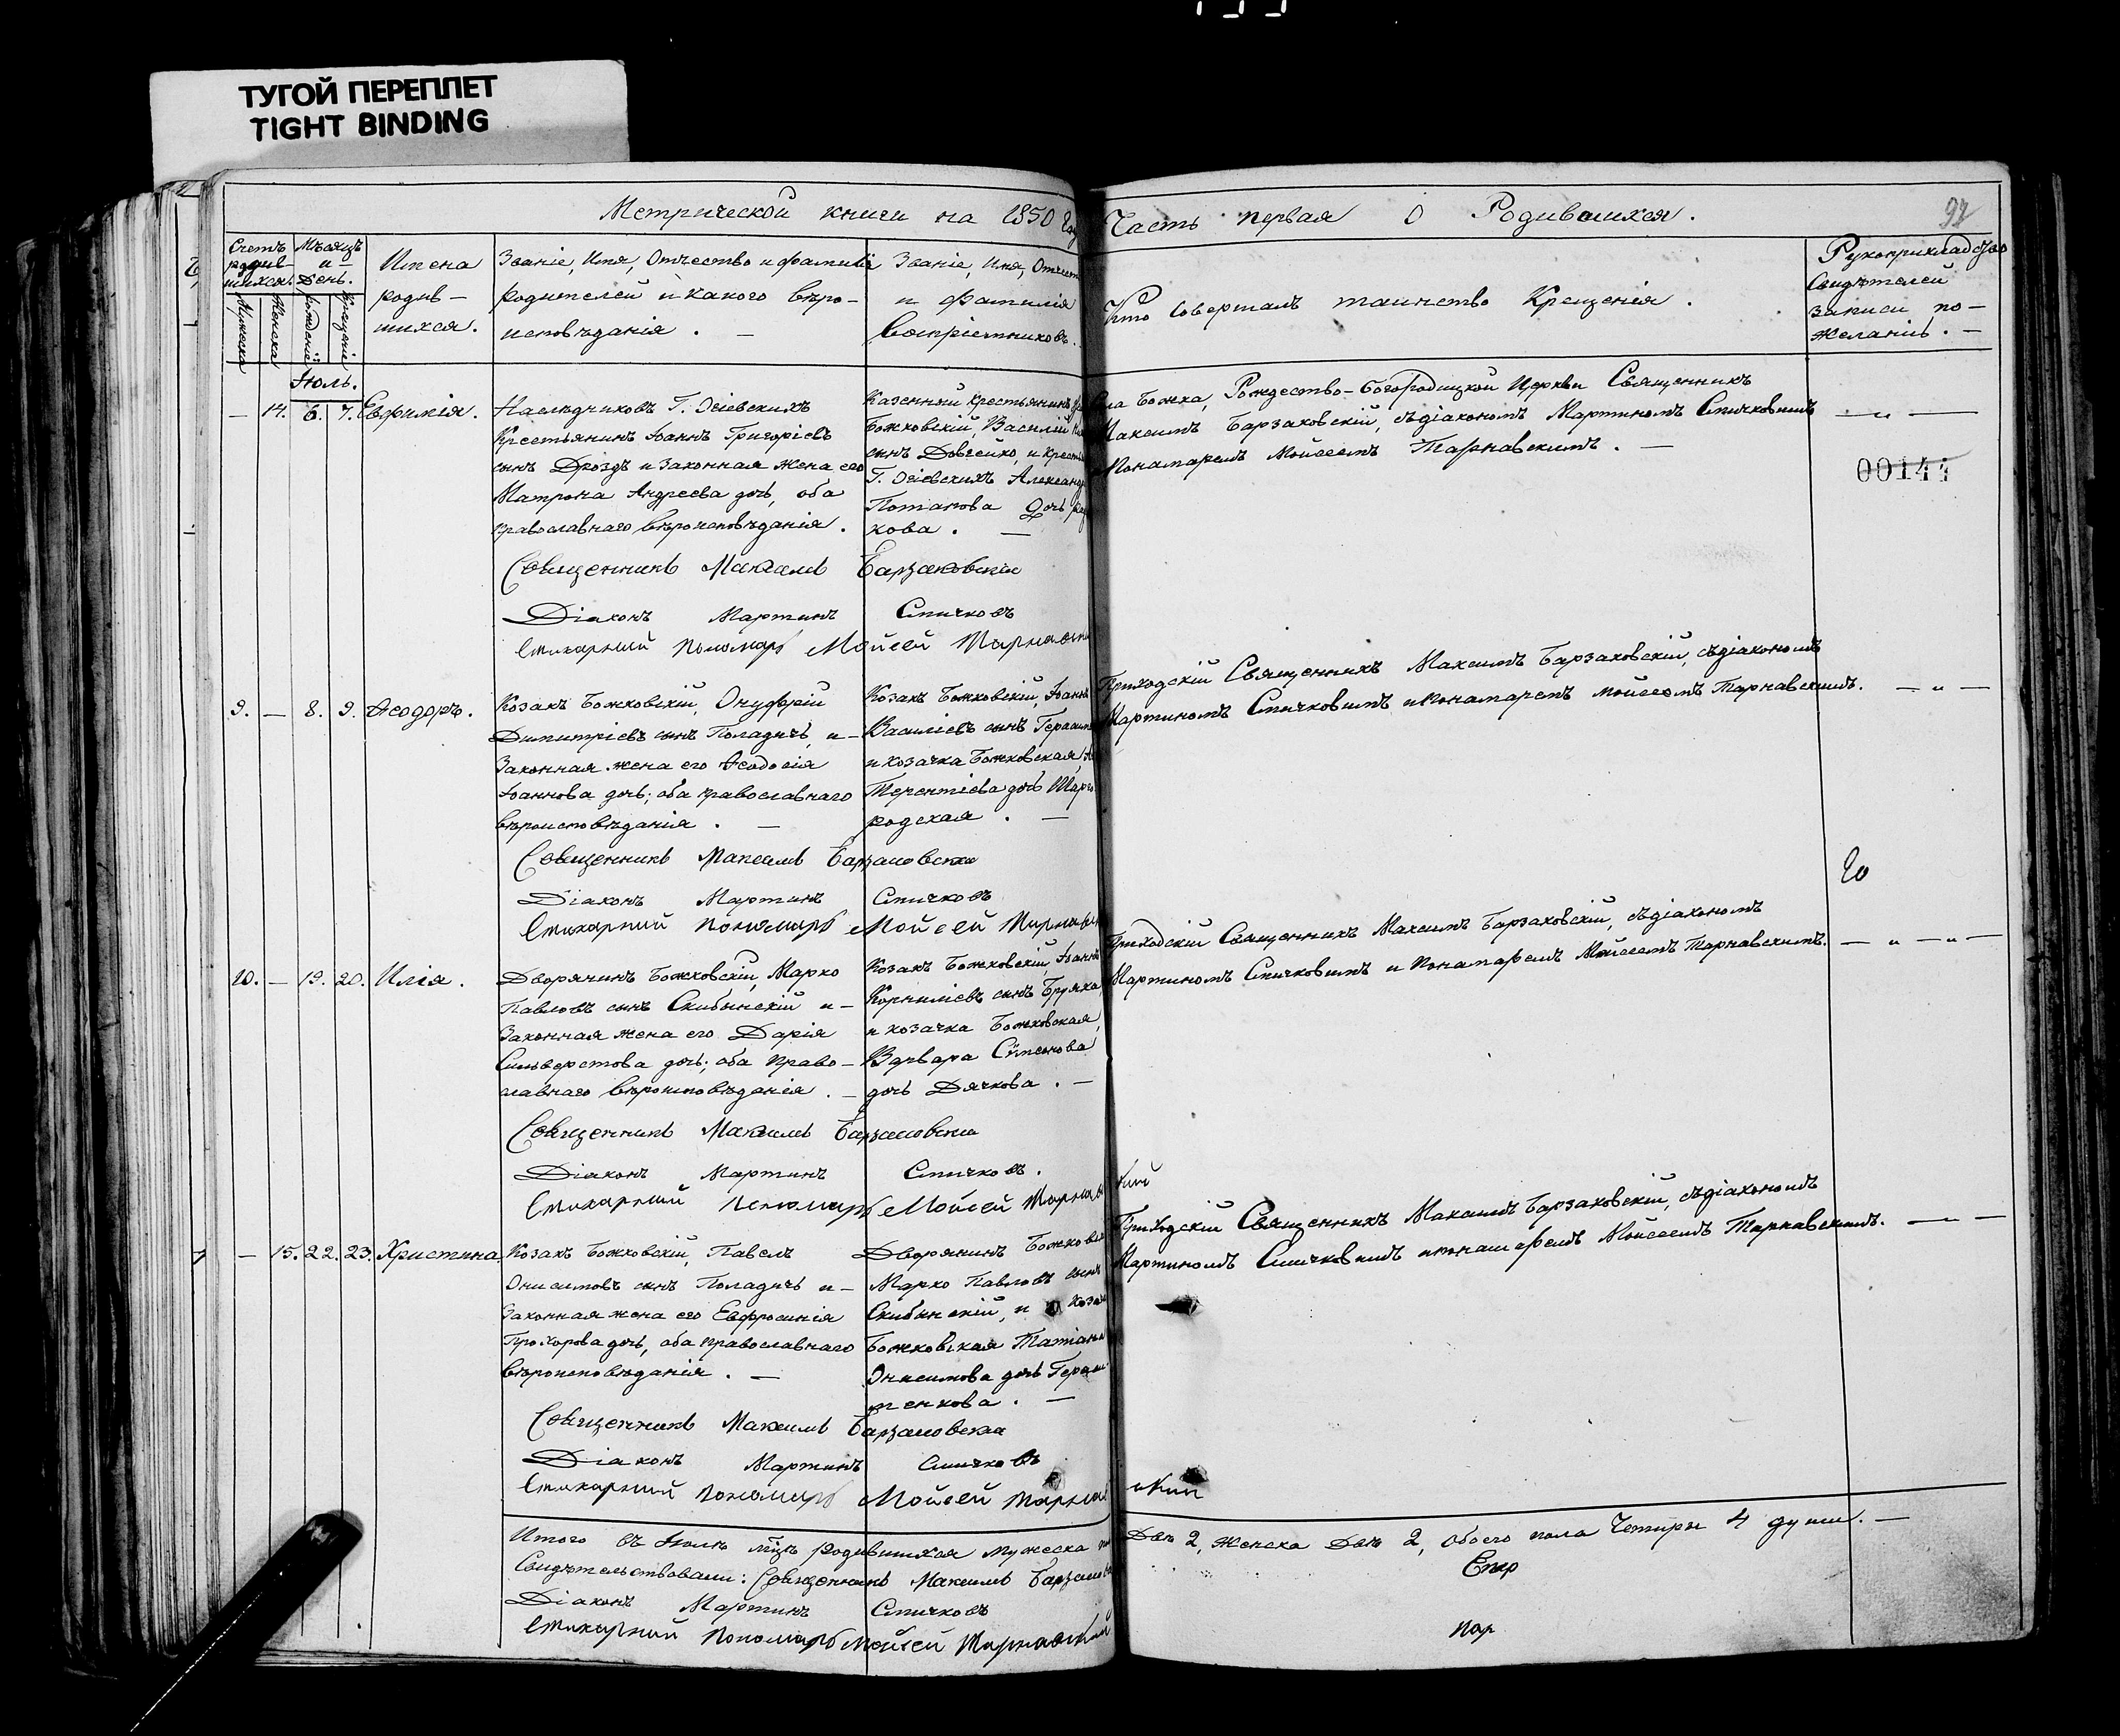 ТУГОЙ ПЕРЕПЛЕТ
TIGHT BINDING
Метрической книги на 1850 год
Часть первая О Родившихся.
92
Счетъ родив-шихся.
Мѣсяцъ и День.
Мужеска
Женска
рожденія
крещенія
Имена
родив-
шихся.
Званіе, Имя, Отчество и фамилія
родителей и какого вѣро-
исповѣданія. —
Званіе, Имя, Отчест
и фамилія
Воспріемниковъ.
Кто совершалъ таинство Крещенія.
Рукоприкладство
Свидѣтелей
записи по-
желанію. —
Іюль.
— 14. 6. 7. Евфимія.
Наслѣдниковъ Г. Осіевскихъ
Крестьянинъ Іоаннъ Григоріевъ
сынъ Дроздъ и законная жена его
Матрона Андреева дочь, оба
православнаго вѣроисповѣданія.
Казенный Крестьянинъ
Божковскій, Василій
сынъ Довгейко, и крест
Г. Осіевскихъ Александр
Потапова дочь
кова. —
села Божка, Рождество-Богородицкой Церкви Священникъ
Максимъ Барзаковскій, съ діакономъ Мартиномъ Спичковимъ
Понамаремъ Мойсеемъ Тарнавскимъ. —
00144
Священникъ Максимъ Барзаковскій
Діаконъ Мартинъ Спичковъ
Стихарный Пономарь Мойсей Тарнавск
9. — 8. 9. Ѳеодоръ.
Козакъ Божковскій, Онуфрій
Димитріевъ сынъ Поладичъ, и-
Законная жена его Ѳеодосія
Іоаннова дочь; оба православнаго
вѣроисповѣданія. —
Козакъ Божковскій, Іоаннъ
Василіевъ сынъ Герасим
и козачка Божковская,
Терентіева дочь Шарго
родская. —
Приходскій Священникъ Максимъ Барзаковскій, съ діакономъ
Мартиномъ Спичковимъ и Понамаремъ Мойсеемъ Тарнавскимъ. — „ —
Священникъ Максимъ Барзаковскій
Діаконъ Мартинъ Спичковъ
Стихарный Пономарь Мойсей Тарнавск
10. — 19. 20. Илія.
Дворянинъ Божковскій, Марко
Павловъ сынъ Скибинскій и-
Законная жена его Дарія
Сильверстова дочь; оба право-
славнаго вѣроисповѣданія. —
Козакъ Божковскій, Іоаннъ
Корниліевъ сынъ Бруяка
и козачка Божковская,
Варвара Сѵмеонова
дочь Дячкова. —
Приходскій Священникъ Максимъ Барзаковскій, съ діакономъ
Мартиномъ Спичковимъ и Понамаремъ Мойсеемъ Тарнавскимъ. — „ — „ —
Священникъ Максимъ Барзаковскій
Діаконъ Мартинъ Спичковъ.
Стихарный Пономарь Мойсей Тарнавскій
— 15. 22. 23. Христина.
Козакъ Божковскій, Павелъ
Онисимовъ сынъ Поладичъ и-
Законная жена его Евфросинія
Прохорова дочь, оба православнаго
вѣроисповѣданія. —
Дворянинъ Божковск
Марко Павловъ сынъ
Скибинскій, и Коза
Божковская Татіана
Онисимова дочь Гераси
менкова. —
Приходскій Священникъ Максимъ Барзаковскій, съ діакономъ
Мартиномъ Спичковимъ и понамаремъ Мойсеемъ Тарнавскимъ. — „ —
Священникъ Максимъ Барзаковскій
Діаконъ Мартинъ Спичковъ
Стихарный Пономарь Мойсей Тарнавскій
Итого въ Іюлѣ мцѣ родившихся мужеска
Двѣ 2, женска Двѣ 2, обоего пола Четыри 4 души. —
Свидѣтельствовали: Священникъ Максимъ Барзаковск
Діаконъ Мартинъ Спичковъ
Стихарный Пономарь Мойсей Тарнавскій